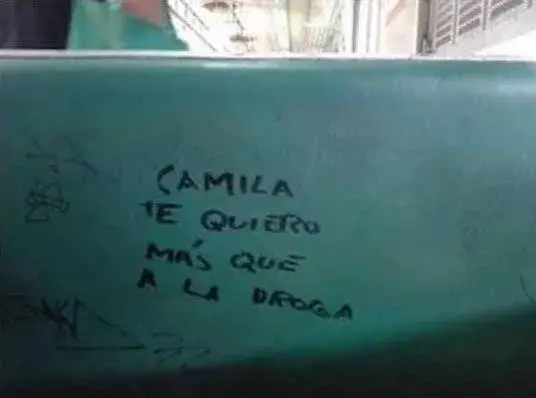 CAMILA
TE QUIERO
MÁS QUE
A LA DROGA